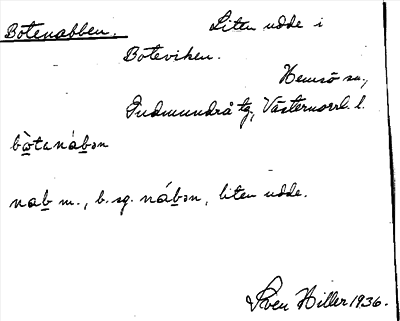 Botenabben. Liten udde i
Boteviken.
Hemsö sn.,
Gudmundrå tg, Västernorrl. l.
bòtanábən
nab m., b. sg. nábən, liten udde.
Sven Hiller 1936.